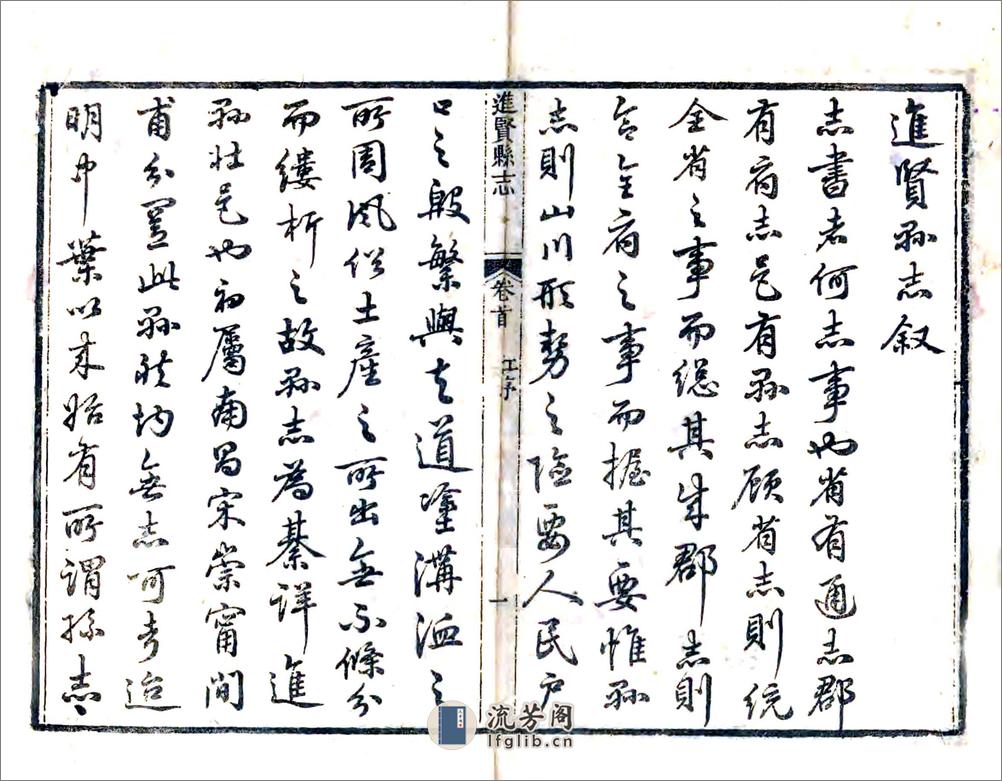 進賢縣志叙
志書者何志事也省有通志郡
有府志邑有縣志顧省志則統
全省之事而總其成郡志則
合全府之事而握其要惟縣
志則山川形勢之險要人民户
進賢縣志 卷首 江序 一
口之殷繁與夫道塗溝洫之
所周風俗土產之所出無不條分
而縷析之故縣志為綦詳進
縣壯邑也初屬南昌宋崇甯間
甫分置此縣然均無志可考迨
明中葉以來始有所謂孫志
流芳阁
lfglib.cn